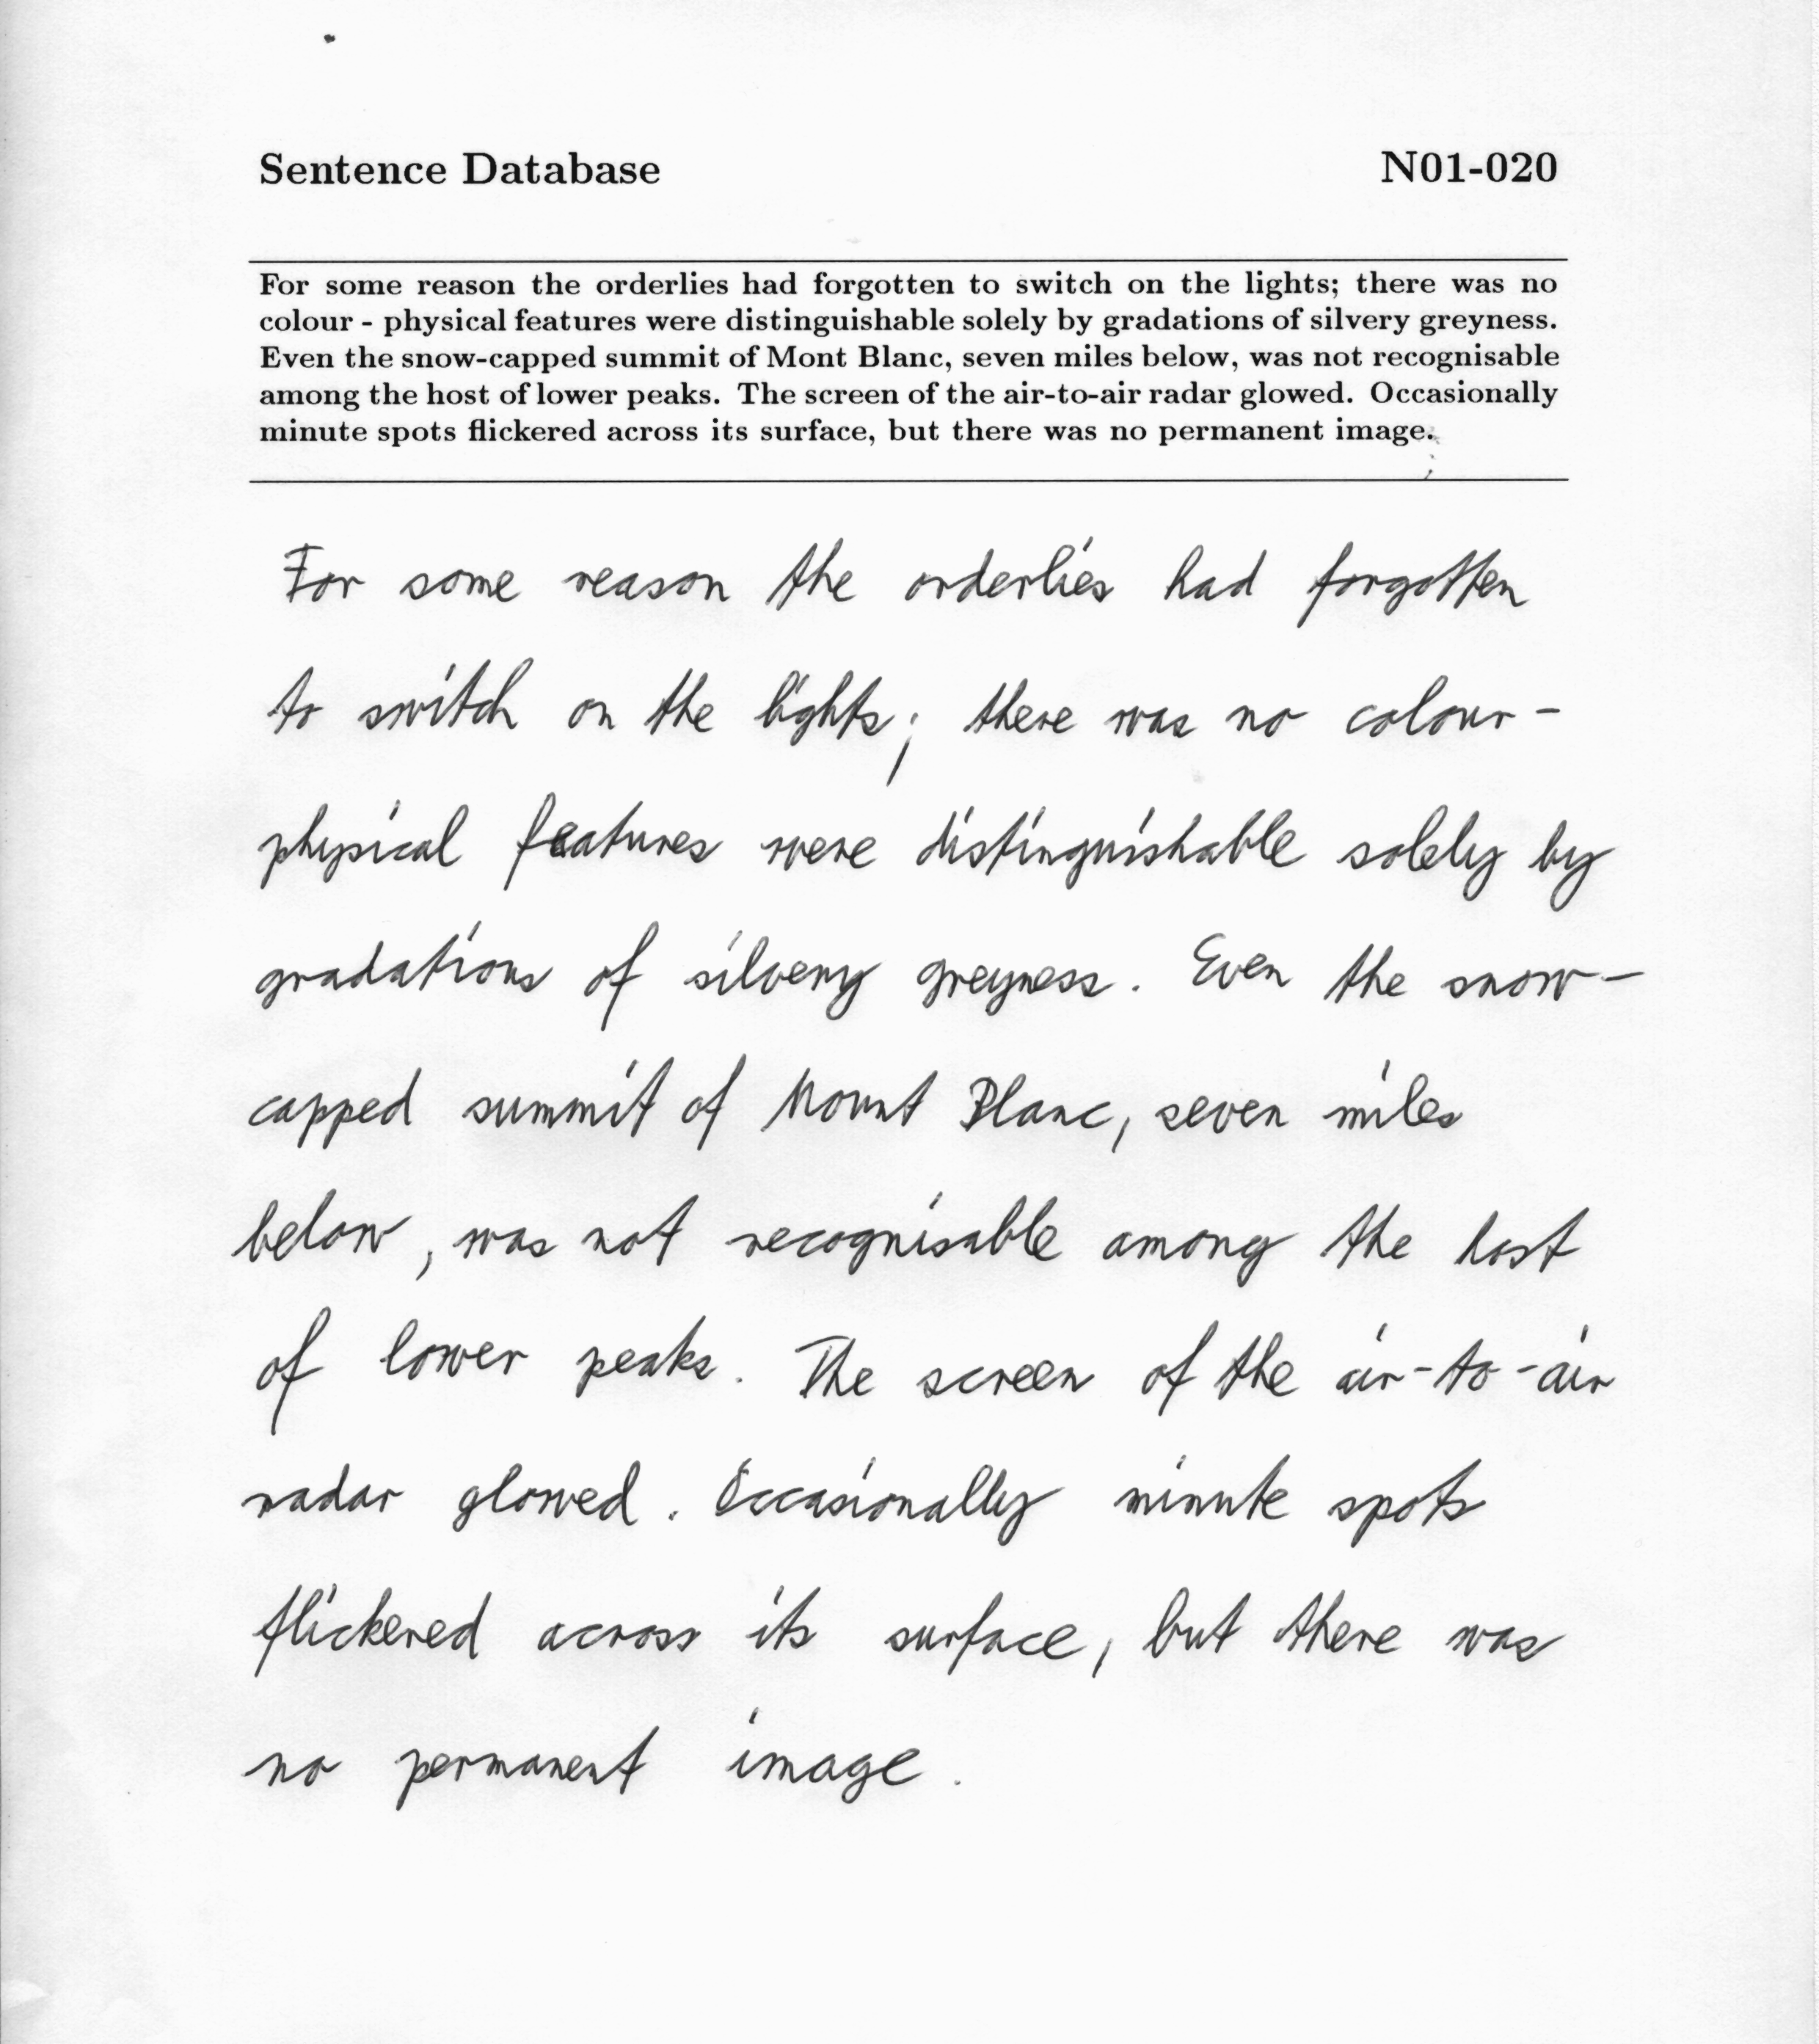 Sentence Database N01-020
For some reason the orderlies had forgotten to switch on the lights; there was no
colour - physical features were distinguishable solely by gradations of silvery greyness.
Even the snow-capped summit of Mont Blanc, seven miles below, was not recognisable
among the host of lower peaks. The screen of the air-to-air radar glowed. Occasionally
minute spots flickered across its surface, but there was no permanent image.
For some reason the orderlies had forgotten
to switch on the lights; there was no colour -
physical features were distinguishable solely by
gradations of silvery greyness. Even the snow-
capped summit of Mount Blanc, seven miles
below, was not recognisable among the host
of lower peaks. The screen of the air-to-air
radar glowed. Occasionally minute spots
flickered across its surface, but there was
no permanent image.